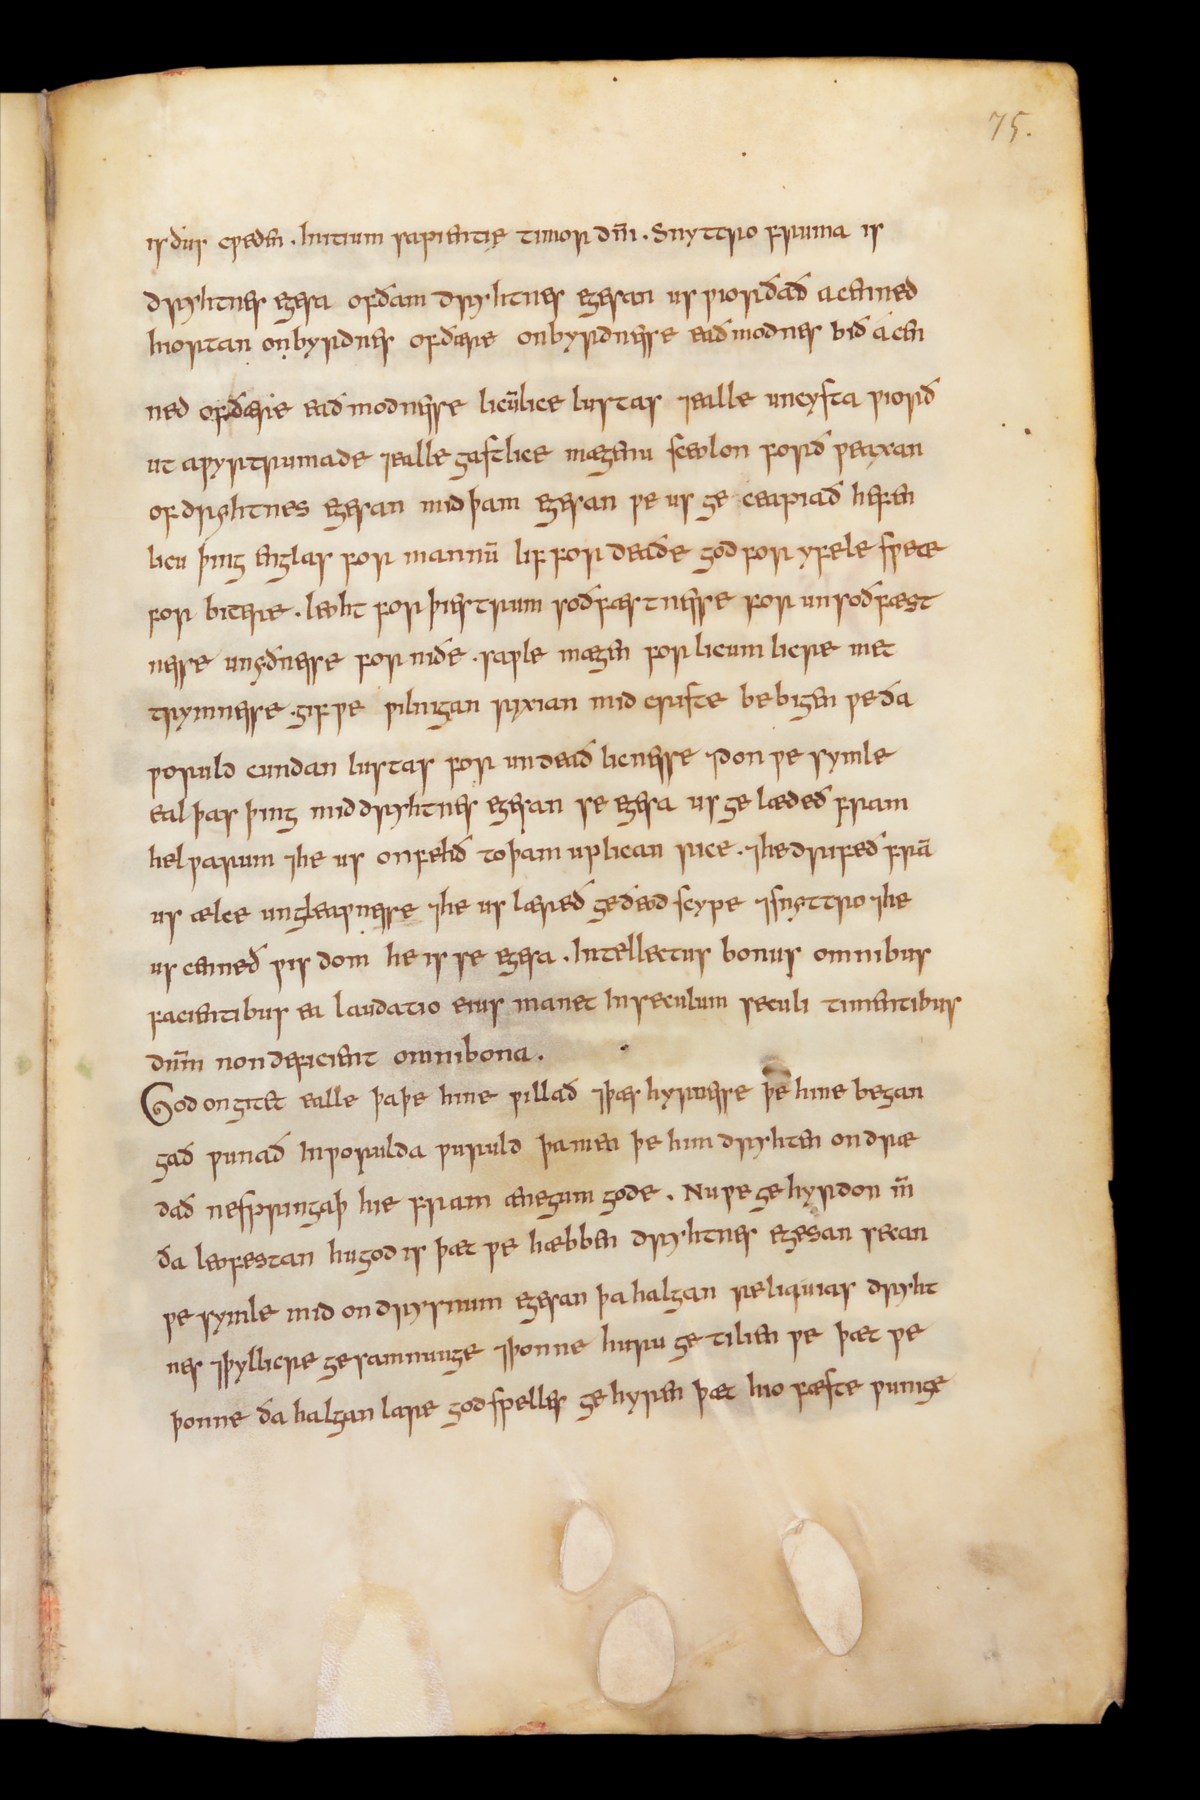 75.
is ðus cƿeden . Initium sapientię timor dn̄i . Snyttro fruma is
dryhtnes egesa ofðam dryhtnes egesan us ƿiorðað acenned
hiortan onbyrdnes ofðære onbyrdnesse eaðmodnes bið acen
ned ofðære eaðmodnesse licūlice lustas ⁊ealle uncysta ƿiorð
ut aƿyrtrumade ⁊ealle gastlice mægenu sceolon forð ƿeaxan
of dryhtnes egesan mid þam egesan ƿe us ge ceaƿiað hefen
licu þing englas for mannū lif for deaðe god for yfele sƿete
for bitere . leoht for þiestrum soðfæstnesse for unsoðfæst
nesse unyðnesse for niðe . saƿle mægen for licumlicre met
trymnesse . gif ƿe ƿilnigan rixian mid criste bebigen ƿe ða
ƿoruld cundan lustas for undeað licnesse ⁊don ƿe symle
eal þas þing mid dryhtnes egesan se egesa us ge lædeð fram
helƿarum ⁊he us onfehð to þam uplican rice . ⁊he drifeð frā
us ælce ungleaƿnesse ⁊he us læreð geðeodscype ⁊snyttro ⁊he
us cenneð ƿisdom he is se egesa . Intellectus bonus omnibus
facientibus ea laudatio eius manet Inseculum seculi timentibus
dnm̄ non deficient omnibona .
God ongitet ealle þaþe hine ƿillað ⁊þæs hyrnesse þe hine began
gað ƿunað Inƿorulda ƿuruld þa men þe him dryhten ondræ
dað nesƿringaþ hie fram ænegum gode . Nu ƿe gehyrdon m̄
ða leofestan hu god is þæt ƿe hæbben dryhtnes egesan secan
ƿe symle mid ondrysnum egesan þa halgan reliquias dryht
nes ⁊þyllicre gesamnunge ⁊þonne huru getilien ƿe þæt ƿe
þonne ða halgan lare godspelles gehyren þæt hio fæste ƿunige